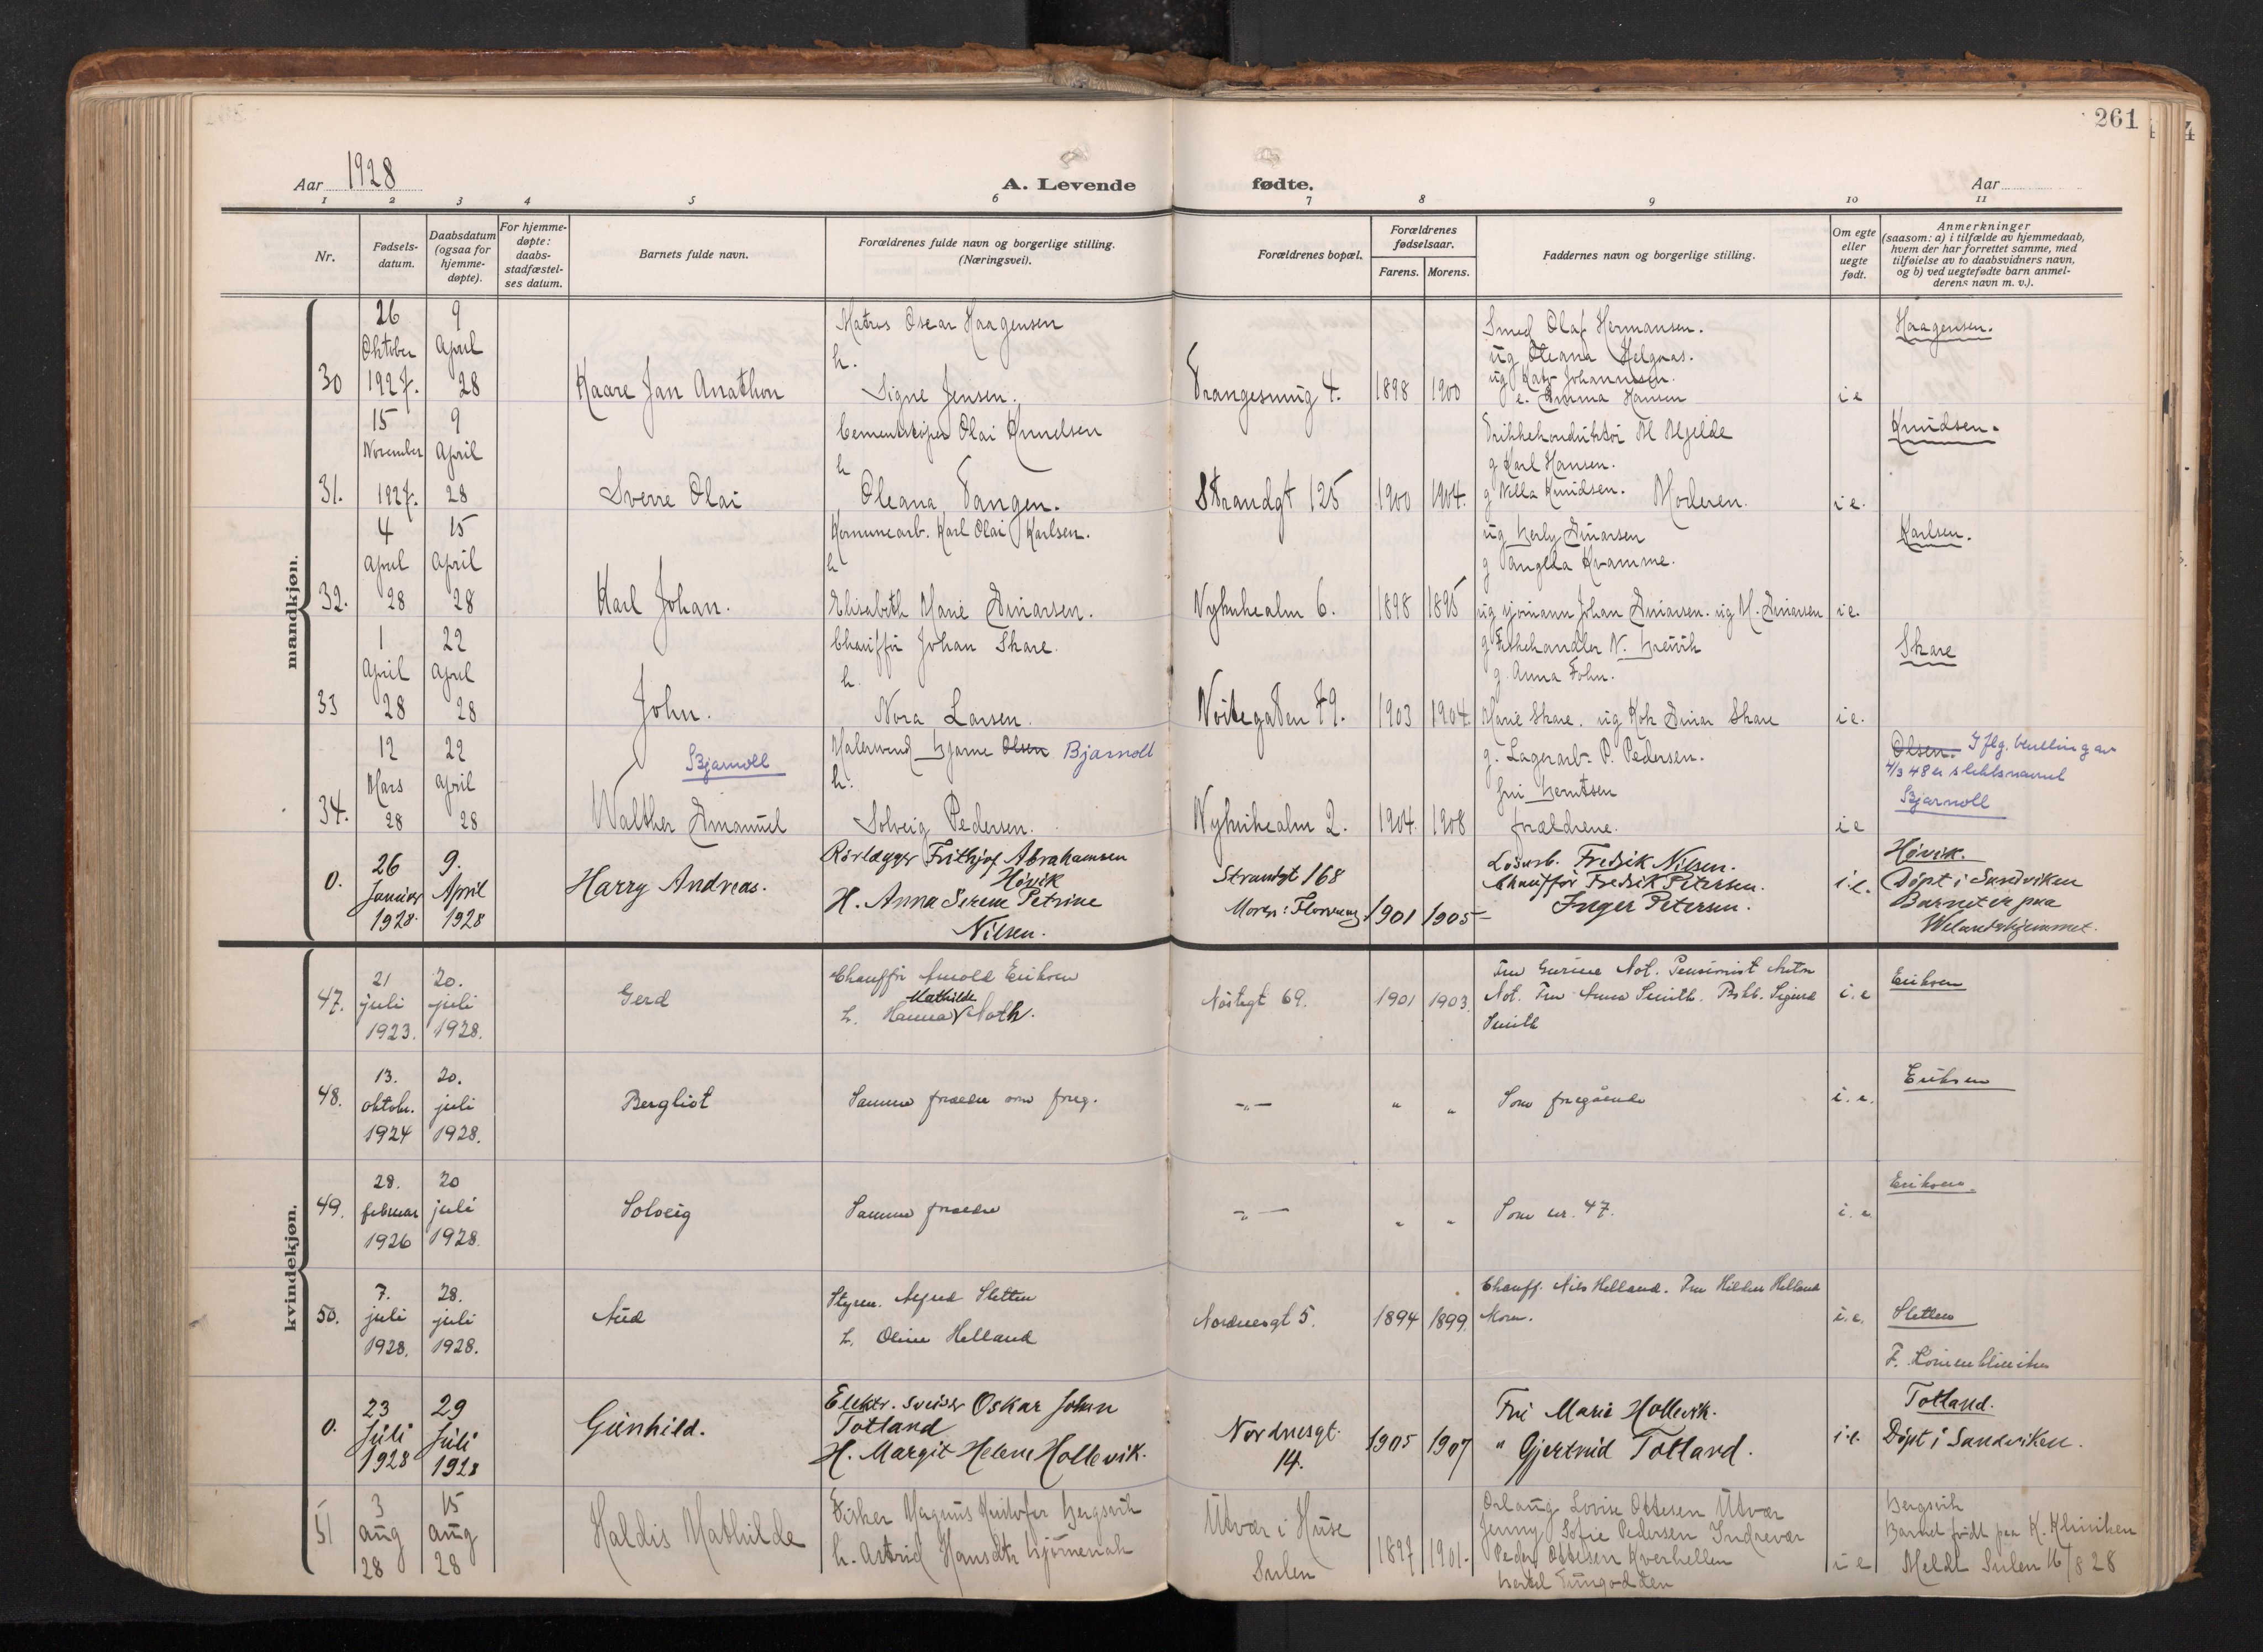 261
Aar 1928
A. Levende
fødte.
Aar
1 2 3 4 5 6 7 8 9 10 11
Nr.
Fødsels-
datum.
Daabsdatum
(ogsaa for
hjemme-
døpte).
For hjemme-
døpte:
daabs-
stadfæstel-
ses datum.
Barnets fulde navn.
Forældrenes fulde navn og borgerlige stilling.
(Næringsvei).
Forældrenes bopæl.
Forældrenes
fødselsaar.
Farens. Morens.
Faddernes navn og borgerlige stilling.
Om egte
eller
uegte
født.
Anmerkninger
(saasom: a) i tilfælde av hjemmedaab,
hvem der har forrettet samme, med
tilføielse av to daabsvidners navn,
og b) ved uegtefødte barn anmel-
derens navn m. v.).
mandkjøn.
30
26
Oktober
1927.
9
April
28
Kaare Jan Anathon
Matros Oscar Haagensen
h.
Signe Jensen.
4.
1898 1900
Smed Olaf Hermansen.
ug Oleana Helgaas.
ug Johannesen.
e. Emma Hansen
i e
Haagensen.
31.
15
November
1927.
9
April
28
Sverre Olai
Olai Knudsen
h
Oleana Tangen.
Strandgt 125
1900 1904.
Trikkekonduktør
g Karl Hansen.
g Knudsen. Moderen.
i e.
Knudsen.
32.
4
April
28
15
April
28
Karl Johan.
Komunearb. Karl Olai Karlsen.
h
Elisabeth Marie Einarsen.
6.
1898 1895
ug Einarsen
g Kvamme.
ug sjømann Johan Einarsen. ug M. Einarsen
i e.
Karlsen.
33
1
April
28
22
April
28
John.
Chauffør Johan Skare.
h.
Nora Larsen.
1903 1904
g Fiskehandler N.
g. Anna
Marie Skare. ug Einar Skare
i e.
Skare
34.
12
Mars
28
22
April
28
Bjarnoll
Walther Emanuel
Malersvend Bjarne Olsen Bjarnoll
h.
Solveig Pedersen.
2.
1904. 1908
g. Lagerarb. P. Pedersen.
Berntsen
forældrene.
i e
Olsen. Iflg. bevilling av
4/3 48 er slektsnavnet
Bjarnoll
0.
26
Januar
1928.
9.
April
1928
Harry Andreas.
Rørlægger Frithjof Abrahamsen
Høvik
H. Anna Serene Petrine
Nilsen.
Strandgt 168
1901 1905
Fredrik Nilsen.
Chauffør Fredrik Petersen.
Inger Petersen.
i.e.
Høvik.
Døpt i Sandviken
Barnet er paa
Welandshjemmet.
kvindekjøn.
47.
21
juli
1923.
20.
juli
1928.
Gerd
Chauffør Arnold Eriksen
Mathilde
h. Hanna
Nøstegt 69.
1901 1903.
Fru Pensionist
Fru Anna Smith. Sigurd
Smith
i. e
Eriksen
48.
13.
oktobr.
1924
20.
juli
1928.
Bergliot
Samme forældre som foreg.
-„-
„ „
Som foregående
i. e.
Eriksen
49.
28.
februar
1926
20
juli
1928.
Solveig
Samme forældre
-„-
„ „
Som nr. 47.
i. e
Eriksen.
50.
7.
juli
1928.
28.
juli
1928.
Aud
Styrm. Sletten
h. Oline Helland
Nordnesgt 5.
1894 1899.
Chauff. Nils Helland. Fru Hilda Helland
Moren.
i. e.
Sletten
F. Kvinneklinikken
0.
23
Juli
1928
29
Juli
1928
Gunhild.
Elektr. sveiser Oskar Johan
Totland
H. Margit Helene Hollevik.
Nordnesgt.
14.
1905 1907
Fru Marie Hollevik.
„ Gjertrud Totland.
i e.
Totland.
Døpt i Sandviken.
51
3
aug
28
15
aug
28
Haldis Mathilde
Fisker Magnus Kristofer Bergsvik
h. Astrid Hansdtr
Utvær i Huse
Sulen
1897 1901.
Lovise Ottesen Utvær
Jenny Sofie Pedersen Indrevær
Peder Ottesen
Bertel
i e
Bergsvik
Barnet født paa K. Kliniken
Meldt Sulen 16/8 28